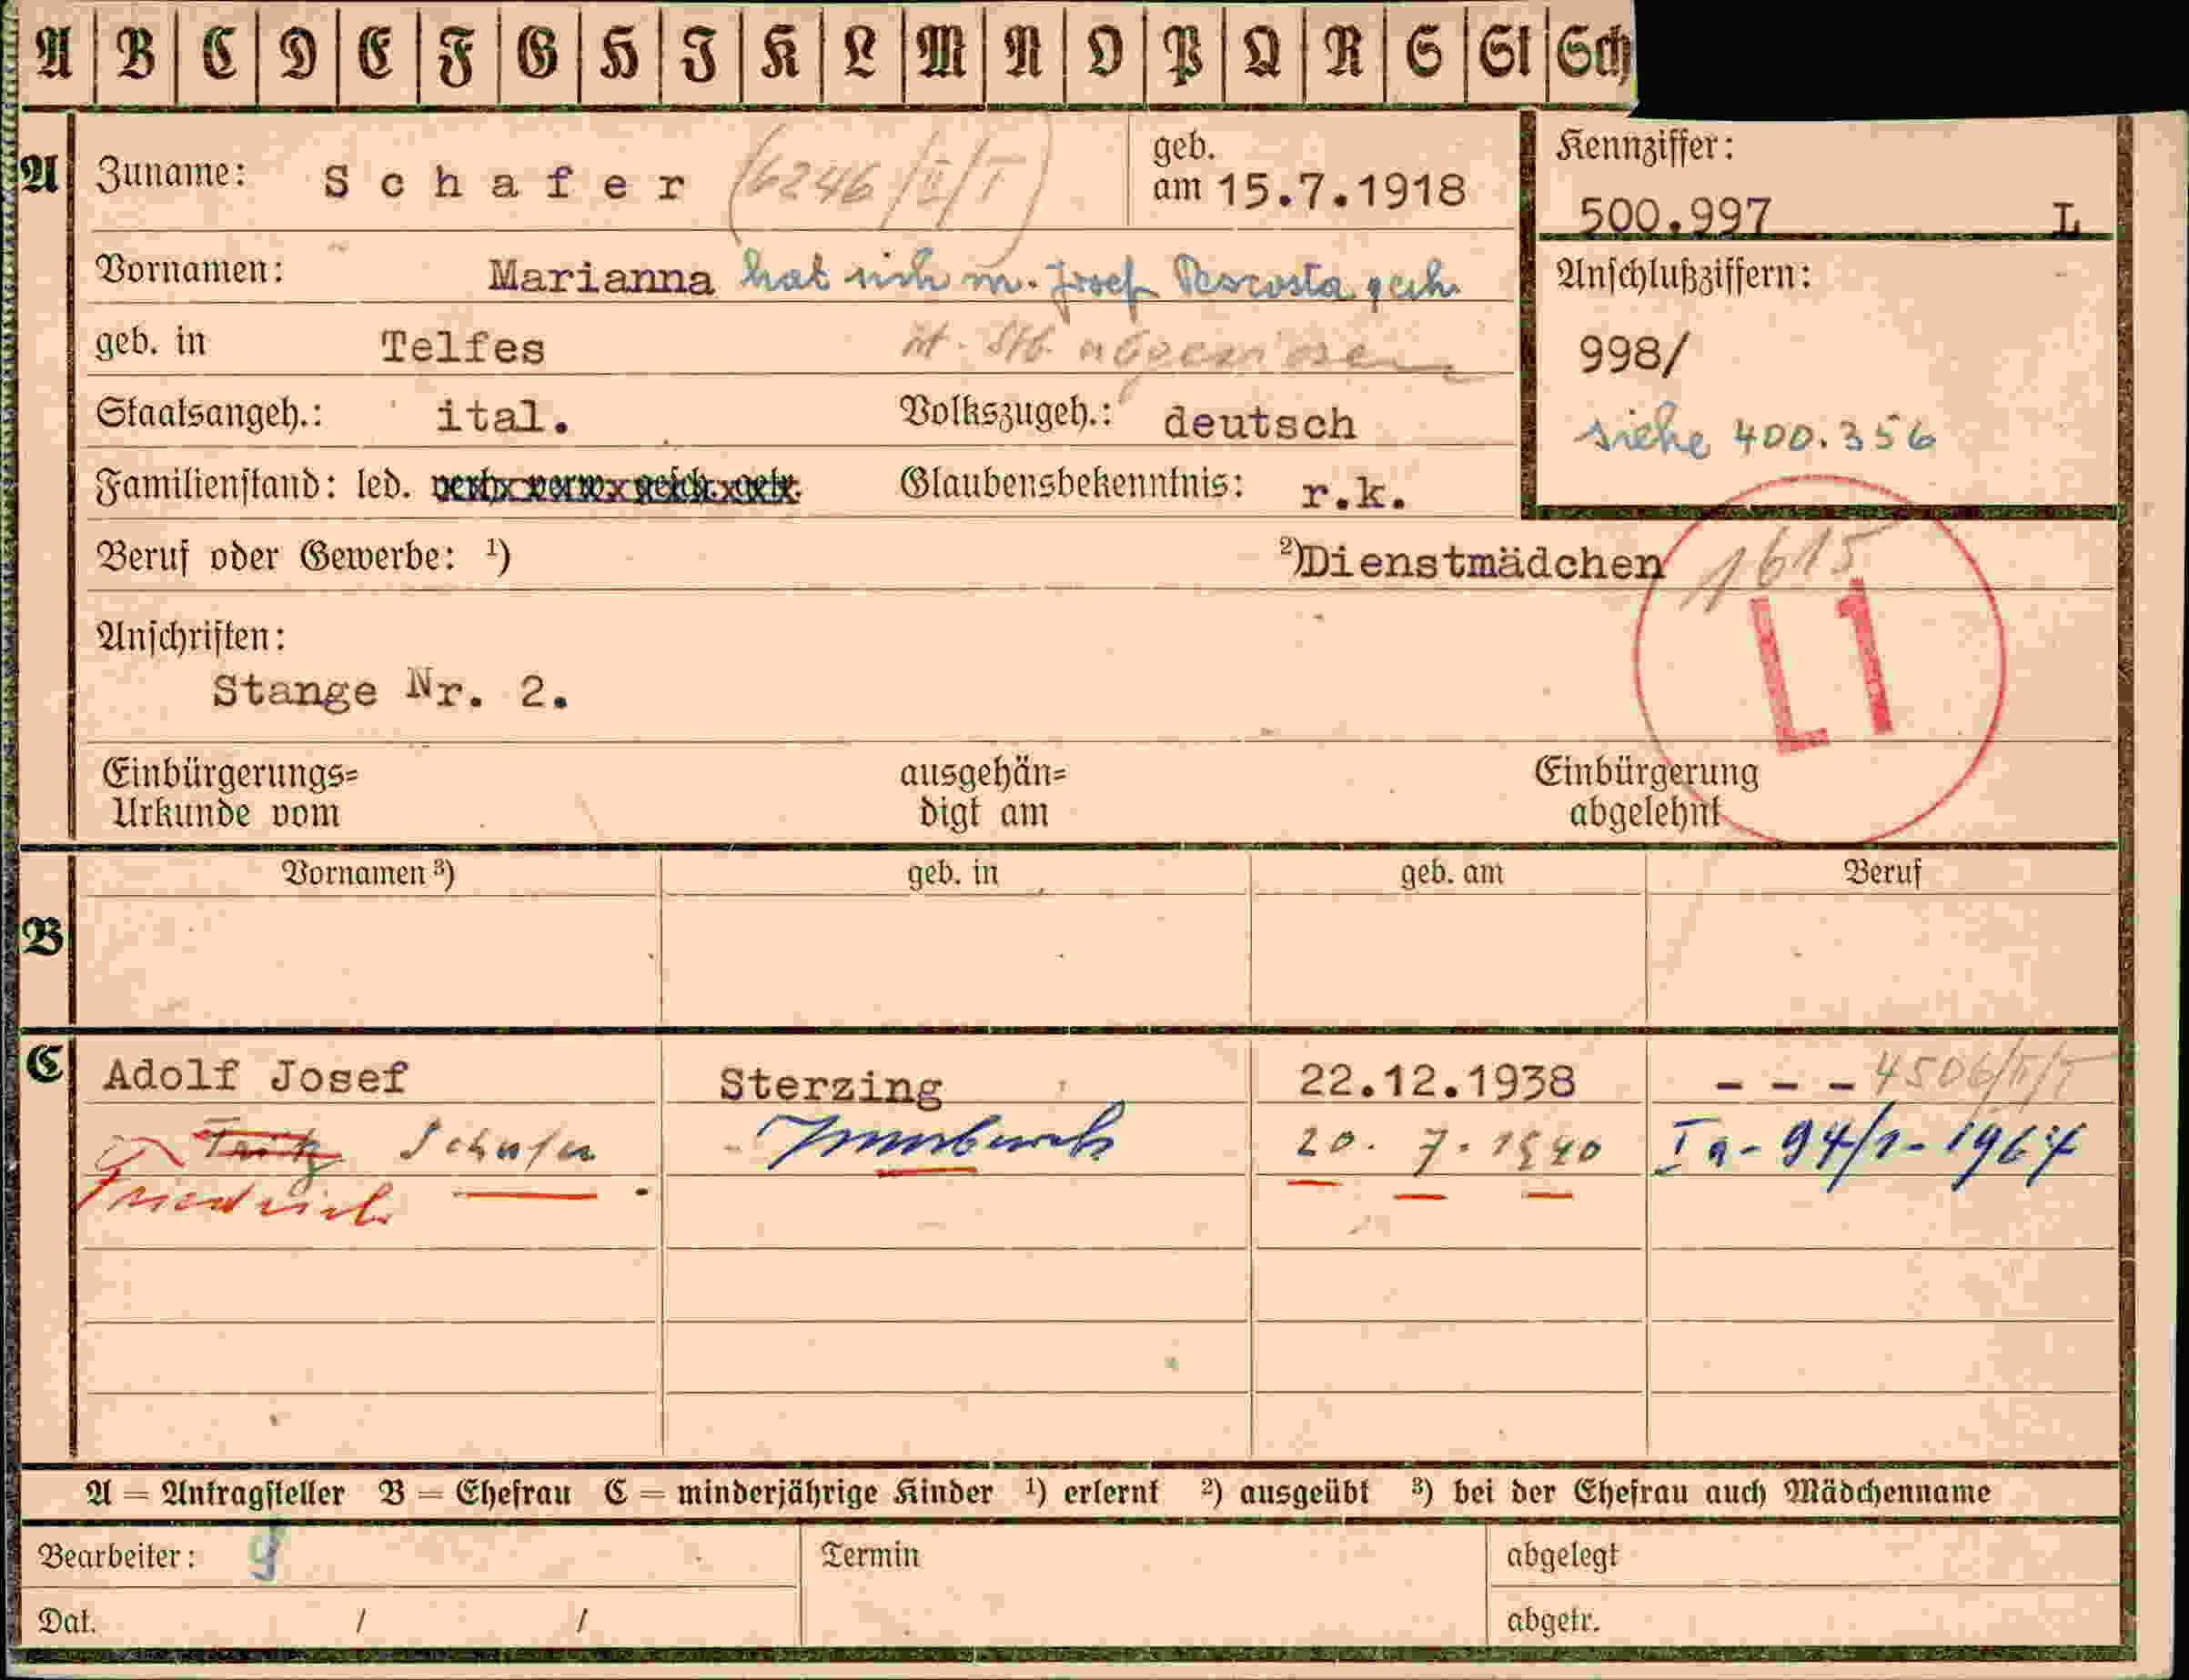 A B C D E F G H I K L M N O P Q R S St Sch
A Zuname: Schafer (6246/II/T) geb. am 15.7.1918
Kennziffer: 500.997 L
Vornamen: Marianna hat sich m. Josef Pescosta geeh.
Anschlußziffern:
geb. in Telfes it. Stb.
998/
Staatsangeh.: ital. Volkszugeh.: deutsch
siehe 400.356
Familienstand: led. verh. verw. gesch. getr. Glaubensbekenntnis: r.k.
Beruf oder Gewerbe: ¹) ²) Dienstmädchen
1615
L1
Anschriften:
Stange Nr. 2.
Einbürgerungs= Urkunde vom ausgehän= digt am Einbürgerung abgelehnt
Vornamen ³) geb. in geb. am Beruf
B
C Adolf Josef Sterzing 22.12.1938 - - - 4506/II/T
Fritz Schafer Innsbruck 20. 7. 1940 Ia-94/1-1967
Friedrich
A = Antragsteller B = Ehefrau C = minderjährige Kinder ¹) erlernt ²) ausgeübt ³) bei der Ehefrau auch Mädchenname
Bearbeiter: Termin abgelegt
Dat. / / abgetr.